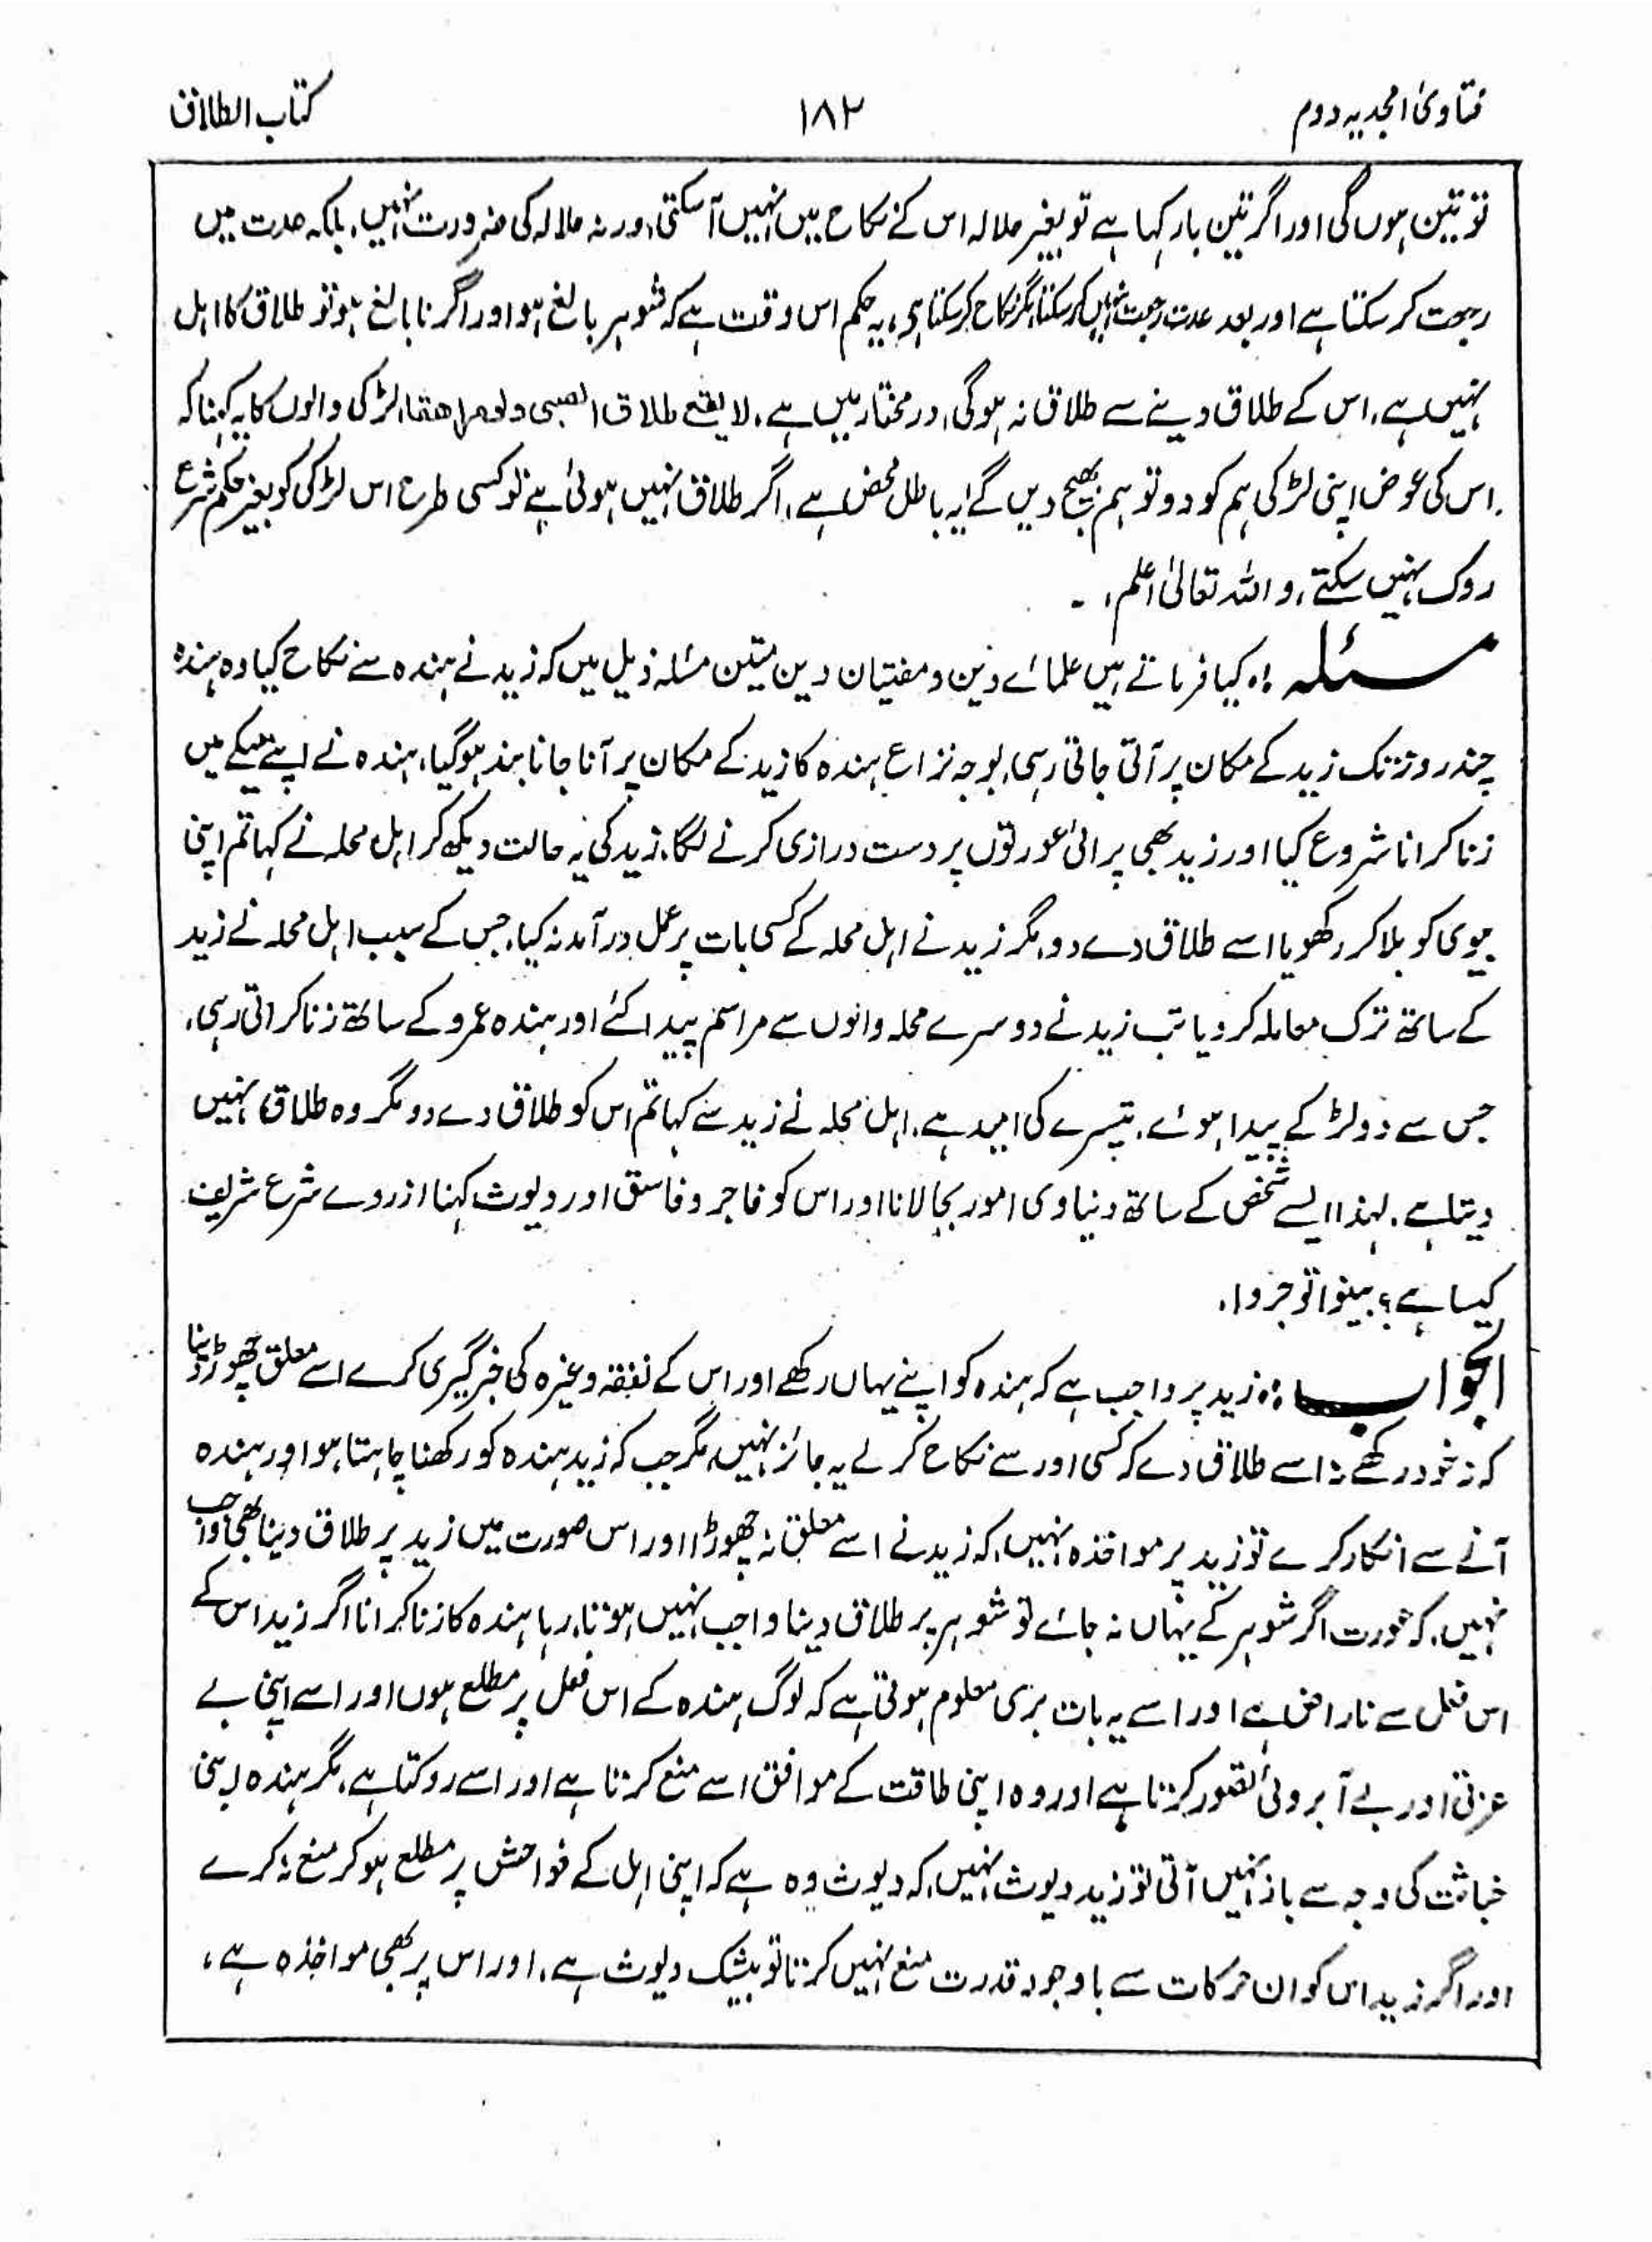 فتاویٰ امجدیہ دوم
۱۸۲
کتاب الطلاق
تو تین ہوں گی اور اگر تین بار کہا ہے تو بغیر حلالہ اس کے نکاح میں نہیں آسکتی، ورنہ حلالہ کی ضرورت نہیں، بلکہ عدت میں
رجعت کر سکتا ہے اور بعد عدت رجعت نہیں کر سکتا مگر نکاح کر سکتا ہے، یہ حکم اس وقت ہے کہ شوہر بالغ ہو اور اگر نابالغ ہو تو طلاق کا اہل
نہیں ہے، اس کے طلاق دینے سے طلاق نہ ہوگی، درمختار میں ہے، لا یقع طلاق الصبی ولو مراھقا، لڑکی والوں کا یہ کہنا کہ
اس کی عوض اپنی لڑکی ہم کو دو تو ہم بھیج دیں گے یہ باطل محض ہے، اگر طلاق نہیں ہوئی ہے تو کسی طرح اس لڑکی کو بغیر حکم شرع
روک نہیں سکتے، واللہ تعالیٰ اعلم، ۔
مسئلہ :، کیا فرماتے ہیں علمائے دین و مفتیان دین متین مسئلہ ذیل میں کہ زید نے ہندہ سے نکاح کیا وہ ہندہ
چند روز تک زید کے مکان پر آتی جاتی رہی، بوجہ نزاع ہندہ کا زید کے مکان پر آنا جانا بند ہوگیا، ہندہ نے اپنے میکے میں
زنا کرانا شروع کیا اور زید بھی پرائی عورتوں پر دست درازی کرنے لگا، زید کی یہ حالت دیکھ کر اہل محلہ نے کہا تم اپنی
بیوی کو بلا کر رکھو یا اسے طلاق دے دو، مگر زید نے اہل محلہ کے کسی بات پر عمل درآمد نہ کیا، جس کے سبب اہل محلہ نے زید
کے ساتھ ترک معاملہ کر دیا تب زید نے دوسرے محلہ والوں سے مراسم پیدا کئے اور ہندہ عمرو کے ساتھ زنا کراتی رہی،
جس سے دو لڑکے پیدا ہوئے، تیسرے کی امید ہے، اہل محلہ نے زید سے کہا تم اس کو طلاق دے دو مگر وہ طلاق نہیں
دیتا ہے، لہٰذا ایسے شخص کے ساتھ دنیاوی امور بجا لانا اور اس کو فاجر و فاسق اور دیوث کہنا ازروے شرع شریف
کیسا ہے؟ بینوا توجروا،
الجواب :، زید پر واجب ہے کہ ہندہ کو اپنے یہاں رکھے اور اس کے نفقہ وغیرہ کی خبرگیری کرے اسے معلق چھوڑ دینا
کہ نہ خود رکھے نہ اسے طلاق دے کہ کسی اور سے نکاح کر لے یہ جائز نہیں، مگر جب کہ زید ہندہ کو رکھنا چاہتا ہو اور ہندہ
آنے سے انکار کرے تو زید پر مواخذہ نہیں، کہ زید نے اسے معلق نہ چھوڑا اور اس صورت میں زید پر طلاق دینا بھی واجب
نہیں، کہ عورت اگر شوہر کے یہاں نہ جائے تو شوہر پر طلاق دینا واجب نہیں ہوتا، رہا ہندہ کا زنا کرانا اگر زید اس کے
اس فعل سے ناراض ہے اور اسے یہ بات بری معلوم ہوتی ہے کہ لوگ ہندہ کے اس فعل پر مطلع ہوں اور اسے اپنی بے
عزتی اور بے آبروئی تصور کرتا ہے اور وہ اپنی طاقت کے موافق اسے منع کرتا ہے اور اسے روکتا ہے، مگر ہندہ اپنی
خباثت کی وجہ سے باز نہیں آتی تو زید دیوث نہیں، کہ دیوث وہ ہے کہ اپنی اہل کے فواحش پر مطلع ہو کر منع نہ کرے
اور اگر زید اس کو ان حرکات سے باوجود قدرت منع نہیں کرتا تو بیشک دیوث ہے، اور اس پر بھی مواخذہ ہے،